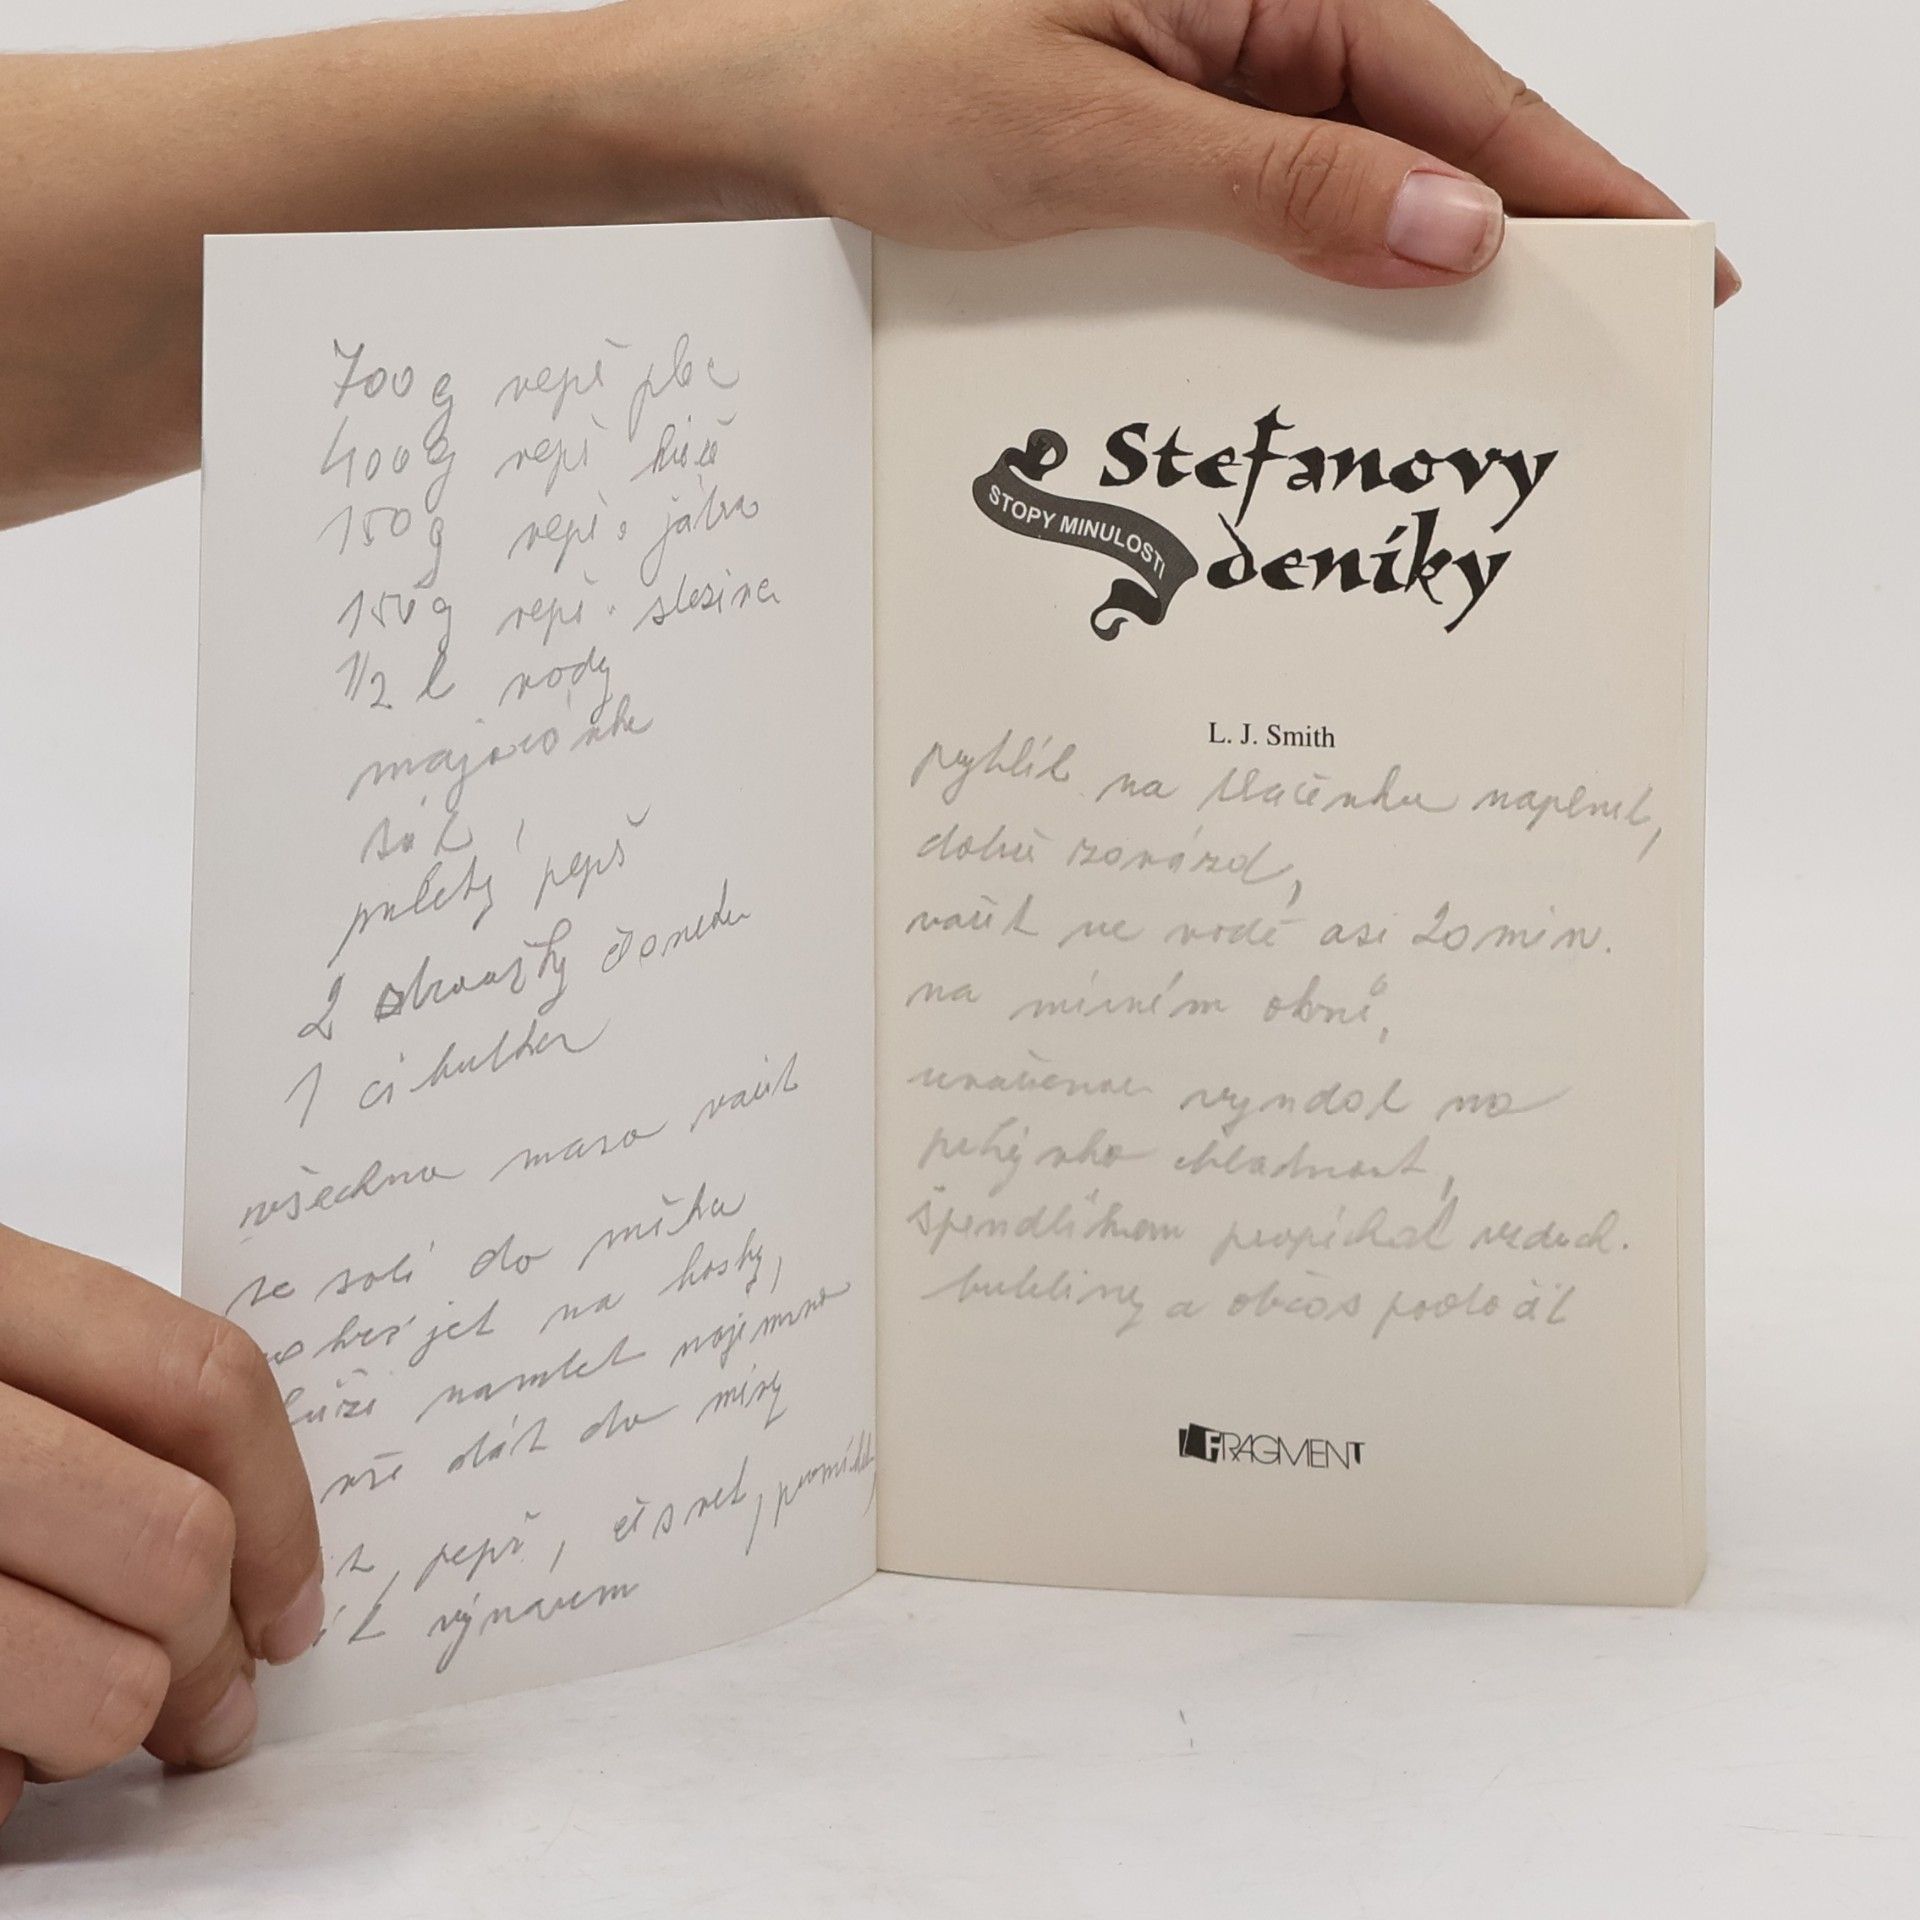 700 g vepř plec
400 g vepř kůže
150 g vepř. játra
150 g vepř. slezina
1/2 l vody
majoránka
sůl,
mletý pepř
2 stroužky česneku
1 cibulka
všechno maso vařit
se solí do měka
nakrájet na kostky,
kůži namlet najemno
vše dát do mísy
pepř, česnek, promíchat,
vývarem
Stefanovy
STOPY MINULOSTI
deníky
L. J. Smith
pytlík na tlačenku naplnit,
dobře zavázat,
vařit ve vodě asi 20 min.
na mírném ohni,
uvařenou vyndat na
vychladnout,
špendlíkem propíchat vzduch.
bubliny a občas potočit
FRAGMENT